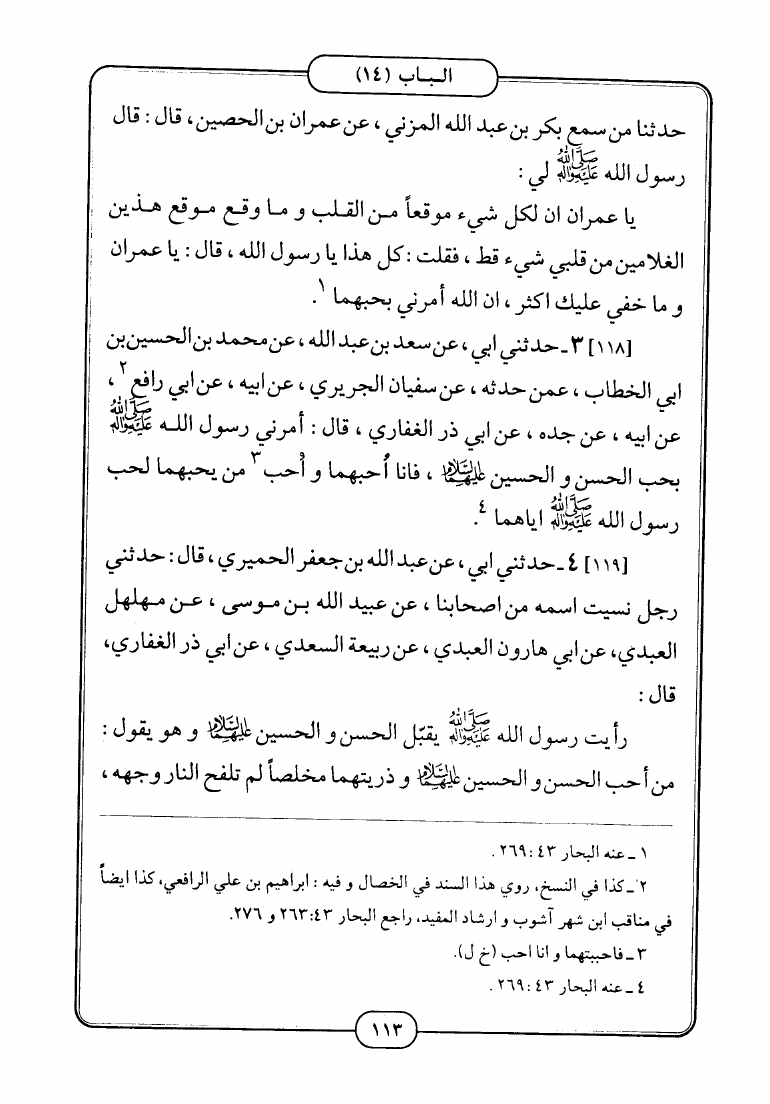 البـاب (١٤)
حدثنا من سمع بكر بن عبد الله المزني ، عن عمران بن الحصين، قال : قال
رسول الله ﷺ لي :
يا عمران ان لكل شيء موقعاً مـن القـلب و مـا وقـع مـوقع هـذين
الغلامين من قلبي شيء قط ، فقلت : كل هذا يا رسول الله ، قال : يا عمران
و ما خفي عليك اكثر ، ان الله أمرني بحبهما ١.
[١١٨] ٣ ـ حدثني ابي ، عن سعد بن عبد الله ، عن محمد بن الحسين بن
ابي الخطاب ، عمن حدثه ، عن سفيان الجريري ، عن ابيه ، عن ابي رافع ٢ ،
عن ابيه ، عن جده ، عن ابي ذر الغفاري ، قال : أمرني رسول اللـه ﷺ
بحب الحسن و الحسين عليهما السلام ، فانا أُحبهما و أُحب ٣ من يحبهما لحب
رسول الله ﷺ اياهما ٤.
[١١٩] ٤ ـ حدثني ابي ، عن عبد الله بن جعفر الحميري ، قال : حدثني
رجل نسيت اسمه من اصحابنا ، عن عبيد الله بـن مـوسى ، عـن مـهلهل
العبدي، عن ابي هارون العبدي ، عن ربيعة السعدي ، عن ابي ذر الغفاري،
قال :
رأيت رسول الله ﷺ يقبّل الحسن و الحسين عليهما السلام و هو يقول :
من أحب الحسن و الحسين عليهما السلام و ذريتهما مخلصاً لم تلفح النار وجهه ،
١ ـ عنه البحار ٤٣ : ٢٦٩ .
٢ ـ كذا في النسخ، روي هذا السند في الخصال و فيه : ابراهيم بن علي الرافعي، كذا ايضاً
في مناقب ابن شهر آشوب و ارشاد المفيد، راجع البحار ٤٣: ٢٦٣ و ٢٧٦.
٣ ـ فاحببتهما و انا احب (خ ل).
٤ ـ عنه البحار ٤٣ : ٢٦٩ .
١١٣